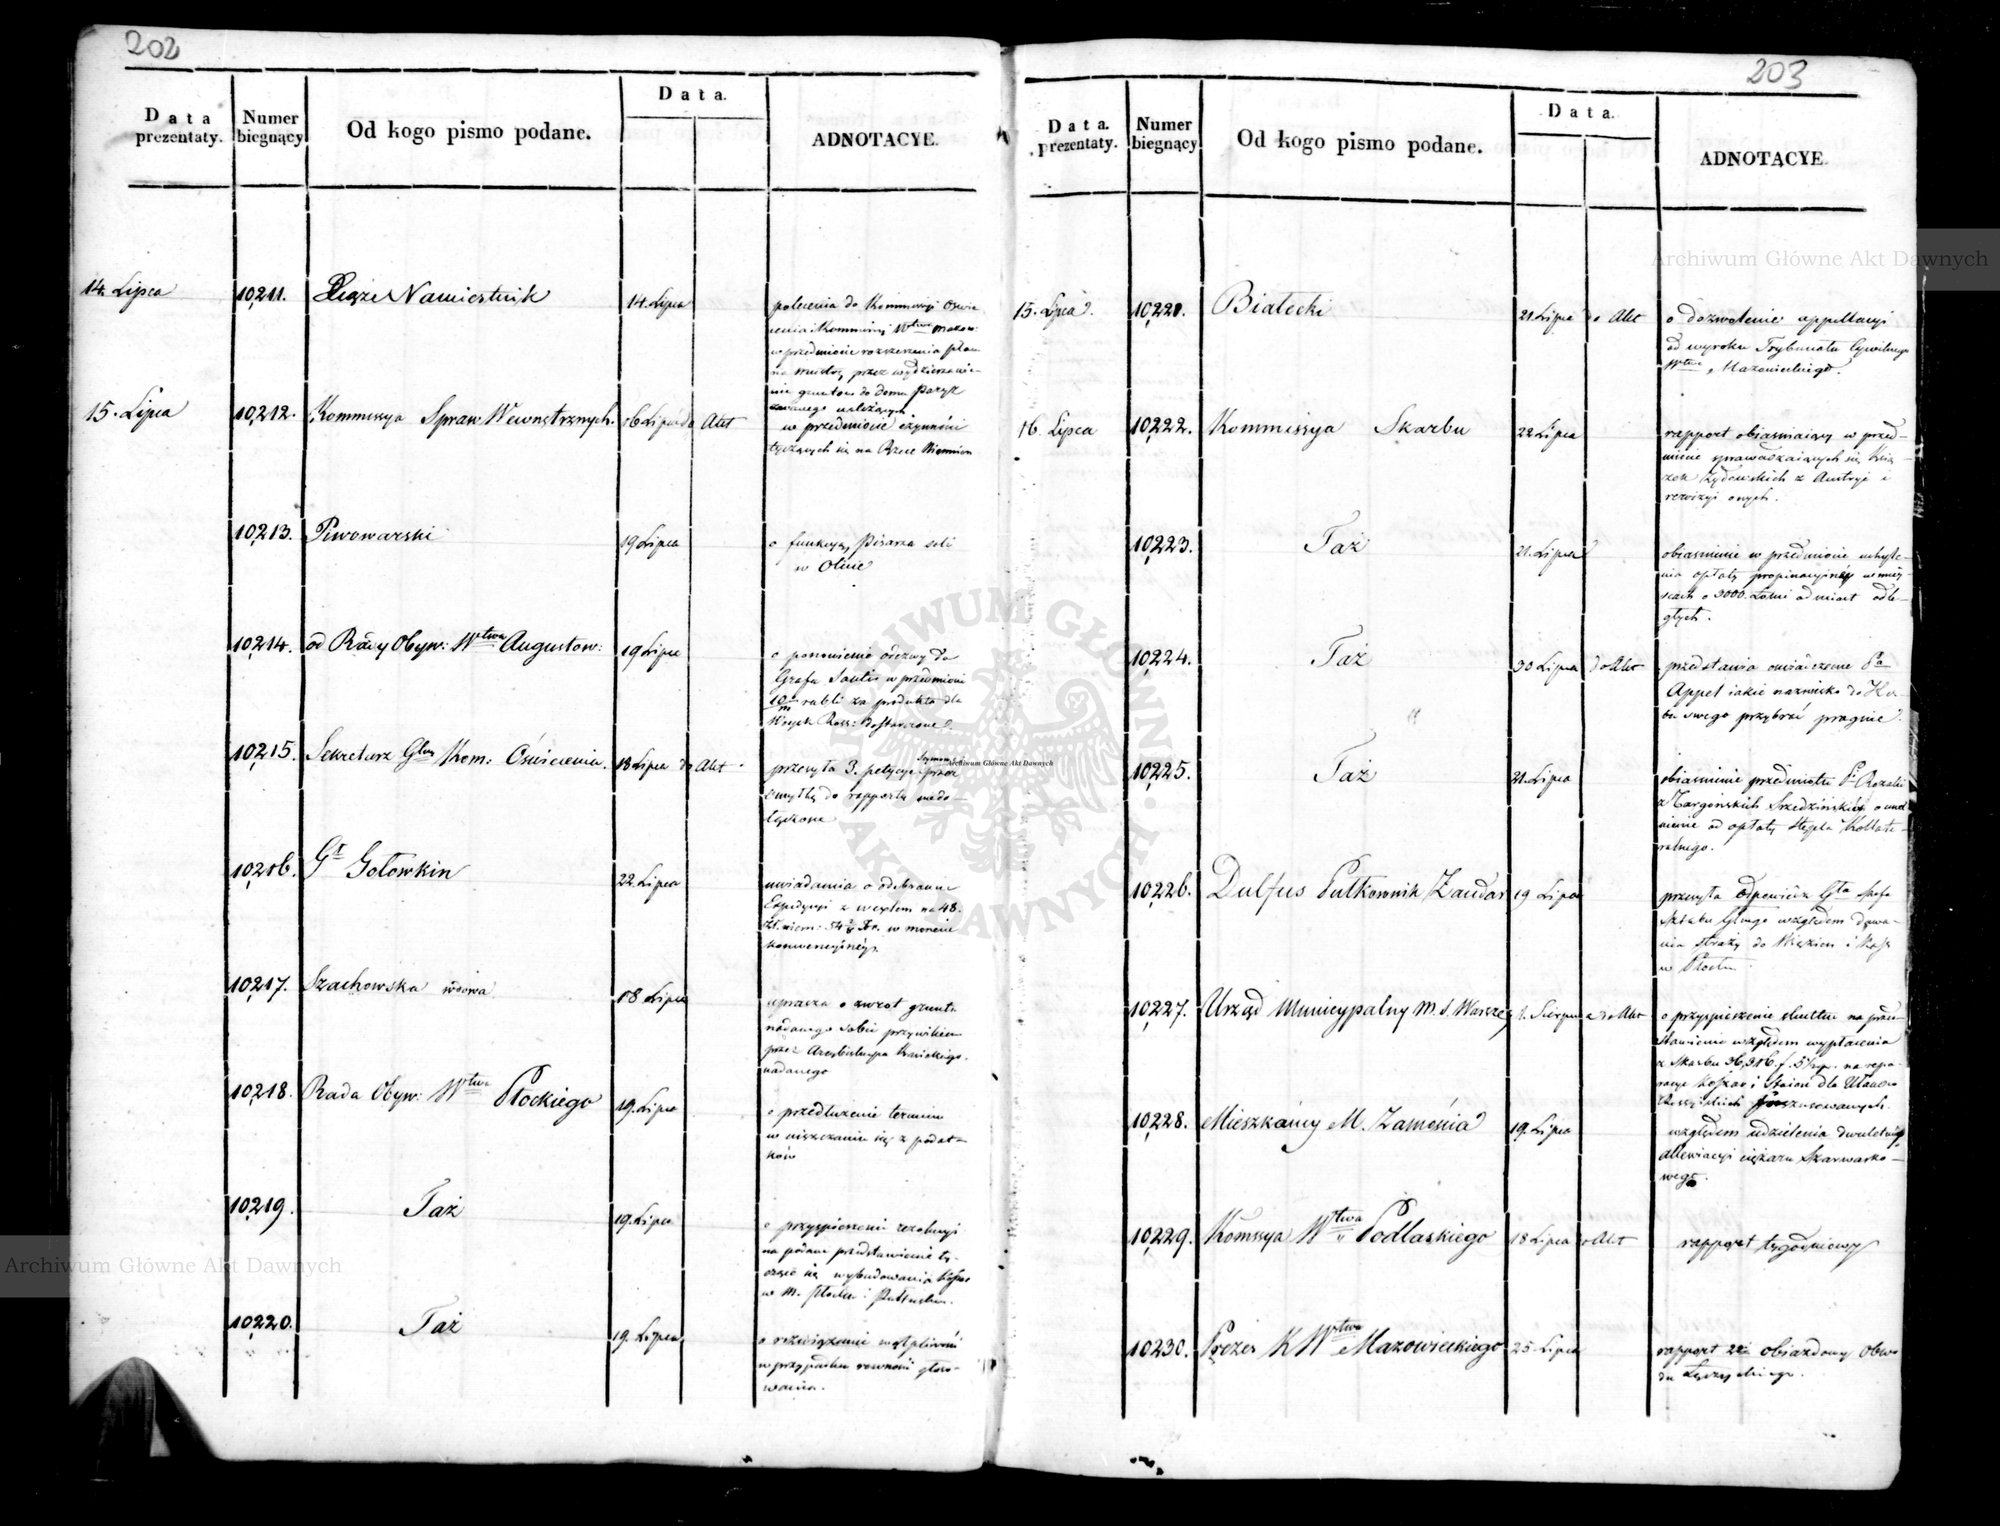 202
Data prezentaty.
Numer biegnący
Od kogo pismo podane.
Data.
ADNOTACYE.
14. Lipca
10,211.
Xiąże Namiestnik
14. Lipca
polecenia do Kommissyi Oświe
cenia i Kommissyi Wtwa Mazow:
w przedmiocie rozszerzenia plan
na przez wydzierzawie-
nie gruntów do domu Paryż
zwanego należących.
15. Lipca
10,212.
Kommissya Spraw Wewnętrznych.
16 Lipca do Akt
w przedmiocie czynności
tyczących się na Rzece Niemnie
10,213.
Piwowarski
19 Lipca
o funkcyą Pisarza soli
w Olicie
10,214.
od Rady Obyw: Wtwa Augustow:
19 Lipca
o ponowienie odezwy do
Grafa w przedmiocie
rubli za produkta dla
Woysk Ross: dostarczone.
10,215.
Sekretarz Glny Kom: Oświecenia.
18 Lipca do Akt
przesyła 3. petycye przez
omyłkę do rapportu niedo-
łączone
10,216.
Gł Gołowkin
22. Lipca
uwiadamia o odebraniu
Expedycyi z wexlem na 48.
w monecie
konwencyjnéy.
10,217.
Szachowska wdowa
18 Lipca
uprasza o zwrot gruntu
nadanego sobie przywilejem
przez Arcybiskupa
nadanego
10,218.
Rada Obyw: Wtwa Płockiego
19. Lipca
o przedłużenie terminu
w uiszczaniu się z podat-
ków
10,219.
Taż
19. Lipca
o przyspieszenie rezolucyi
na podane przedstawienie ty-
czące się wybudowania Koszar
w M. Płocku i Pułtusku.
10,220.
Taż
19. Lipca
o rozwiązanie wątpliwości
w przypadku równości głoso-
wania.
203
Data. prezentaty.
Numer biegnący
Od kogo pismo podane.
Data.
ADNOTACYE.
15. Lipca
10,221.
Białecki
21. Lipca do Akt
o dozwolenie appellacyi
od wyroku Trybunału Cywilnego
Wtwa Mazowieckiego.
16. Lipca
10,222.
Kommissya Skarbu
22 Lipca
rapport obiasniaiący w przed-
miocie sprowadzaiących się Ksią-
żek Żydowskich z Austryi i
rewizyi onych.
10,223.
Taż
21. Lipca
obiasnienie w przedmiocie uchyle-
nia opłaty propinacyinéy w miey-
scach o 3000. Łokci od miast odle-
głych.
10,224.
Taż
30 Lipca do Akt
przedstawia oswiadczenie Pa
Appel iakie nazwisko do Her-
bu swego przybrać pragnie.
10,225.
Taż
21. Lipca
obiasnienie przedmiotu Pi Rozalii
z Targońskich Srzedzińskiéy o uwol
nienie od opłaty Stępla Kollate-
ralnego.
10,226.
Dulfus Pułkownik Żandar
19 Lipca
przesyła odpowiedź Gła Szefa
Sztabu Głnego względem dawa-
nia straży do Więzień i Kass
w Płocku.
10,227.
Urząd Municypalny M. S. Warszy
1. Sierpnia do Akt
o przyspieszenie skutku na przed-
stawienie względem wypłacenia
z Skarbu 36,316. f. 5½gr. na repa-
racye Koszar i Staien dla Ułanów
Rossyiskich
10,228.
Mieszkańcy M. Zamościa
19. Lipca
względem udzielenia dwuletniéy
allewiacyi ciężaru Szarwarko-
wego.
10,229.
Komssya Wtwa Podlaskiego
18 Lipca do Akt
rapport tygodniowy
10,230.
Prezes K Wtwa Mazowieckiego
25. Lipca
rapport 2gi obiazdowy Obwo
du Łęczyckiego.
Archiwum Główne Akt Dawnych
Archiwum Główne Akt Dawnych
Archiwum Główne Akt Dawnych
ARCHIWUM GŁÓWNE AKT DAWNYCH